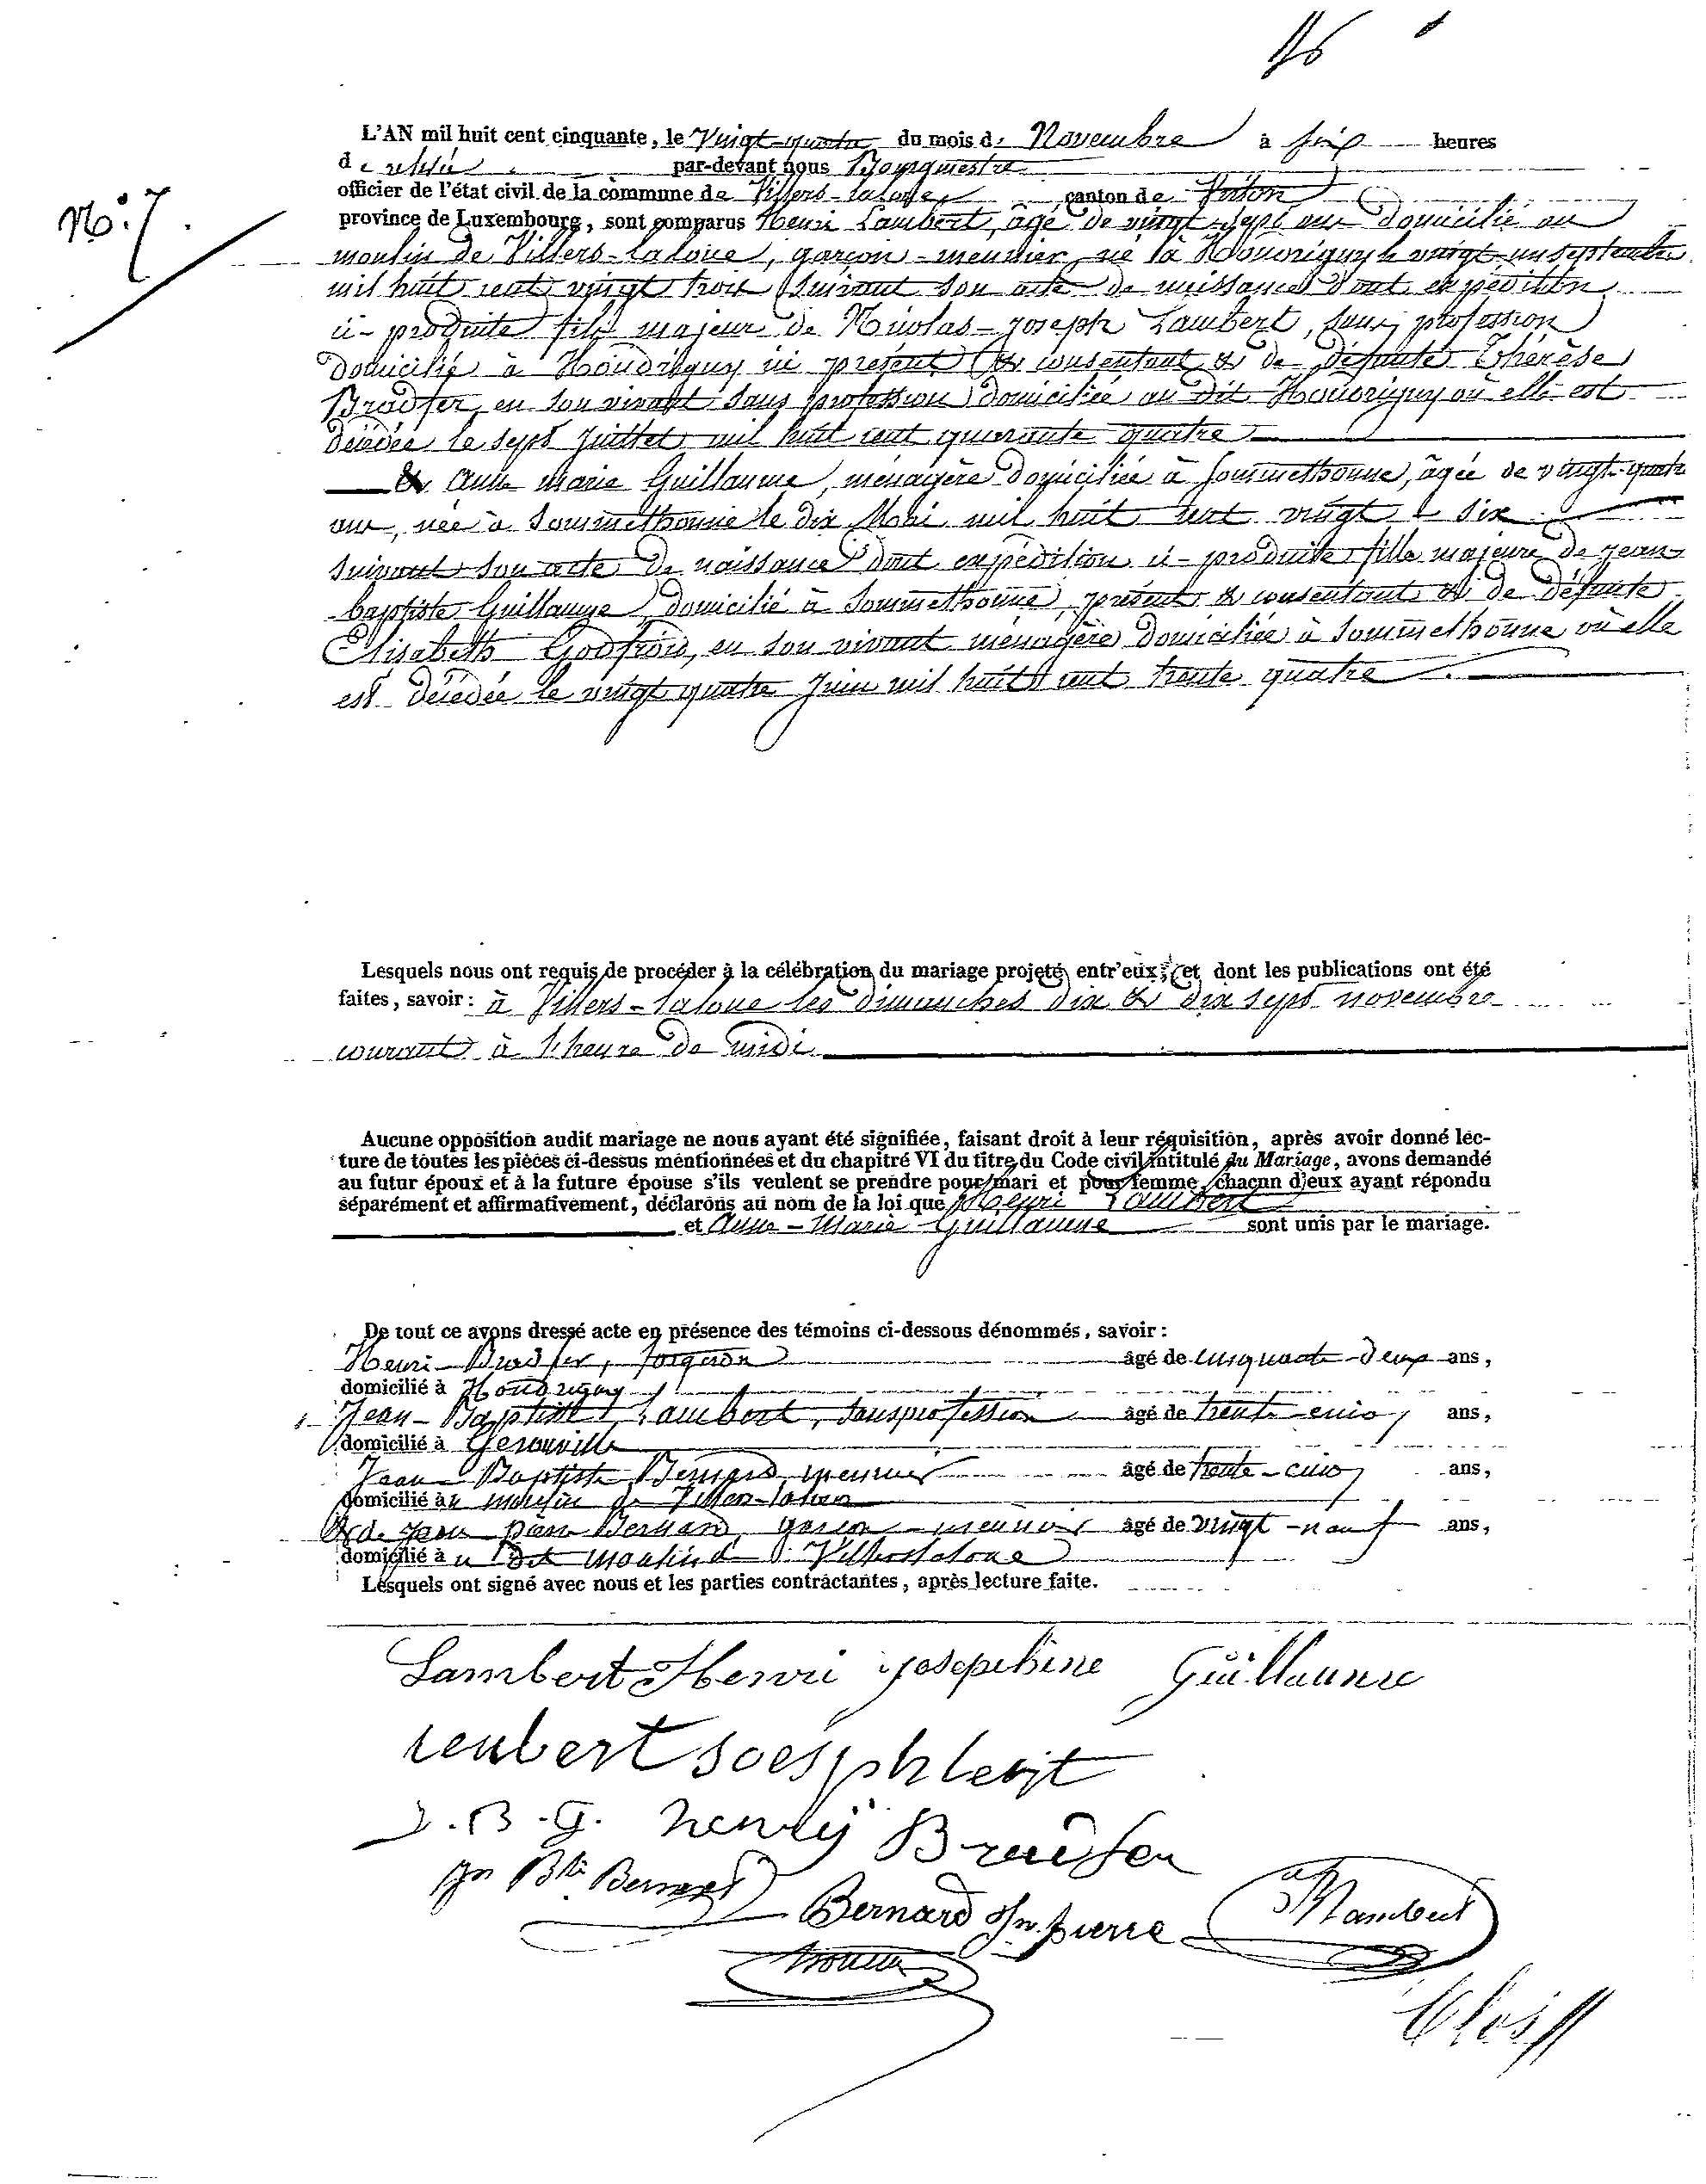 N°: 7.
L'AN mil huit cent cinquante, le Vingt-quatre du mois de Novembre à six heures
de relevée par-devant nous Bourgmestre
officier de l'état civil de la commune de Villers-laloue canton de Virton
province de Luxembourg, sont comparus Henri Lambert, âgé de vingt-sept ans domicilié au
moulin de Villers-laloue, garçon-meunier, né à Houdrigny le vingt-un septembre
mil huit cent vingt trois suivant son acte de naissance dont expédition
ci-produite fils majeur de Nicolas-Joseph Lambert, sans profession
domicilié à Houdrigny ici présent & consentant & de défunte Thérèse
Bradfer en son vivant sans profession domiciliée au dit Houdrigny où elle est
décédée le sept Juillet mil huit cent quarante quatre
& Anne marie Guillaume, ménagère domiciliée à Sommethonne, âgée de vingt-quatre
ans, née à Sommethonne le dix Mai mil huit cent vingt six
suivant son acte de naissance dont expédition ci-produite fille majeure de jean-
baptiste Guillaume domicilié à Sommethonne, présent & consentant & de défunte
Elisabeth Godfroid, en son vivant ménagère domiciliée à Sommethonne où elle
est décédée le vingt quatre Juin mil huit cent trente quatre
Lesquels nous ont requis de procéder à la célébration du mariage projeté entr'eux, et dont les publications ont été
faites, savoir: à Villers-laloue les dimanches dix & dix sept novembre
courant à l'heure de midi
Aucune opposition audit mariage ne nous ayant été signifiée, faisant droit à leur réquisition, après avoir donné lec-
ture de toutes les pièces ci-dessus mentionnées et du chapitre VI du titre du Code civil intitulé du Mariage, avons demandé
au futur époux et à la future épouse s'ils veulent se prendre pour mari et pour femme, chacun d'eux ayant répondu
séparément et affirmativement, déclarons au nom de la loi que Henri Lambert
et Anne-Marie Guillaume sont unis par le mariage.
De tout ce avons dressé acte en présence des témoins ci-dessous dénommés, savoir:
Henri Bradfer, forgeron âgé de cinquante-deux ans,
domicilié à Houdrigny
Jean-Baptiste Lambert, sans profession âgé de trente-cinq ans,
domicilié à Gerouville
Jean Baptiste Bernard, meunier âgé de trente-cinq ans,
domicilié au moulin de Villers-laloue
& de Jean pierre Bernard, garçon-meunier âgé de vingt-neuf ans,
domicilié au dit moulin de Villerslaloue
Lesquels ont signé avec nous et les parties contractantes, après lecture faite.
Lambert Henri josephine Guillaume
J. B. G. henry Bradfer
Jn Bte Bernard Bernard Jn. pierre Lambert